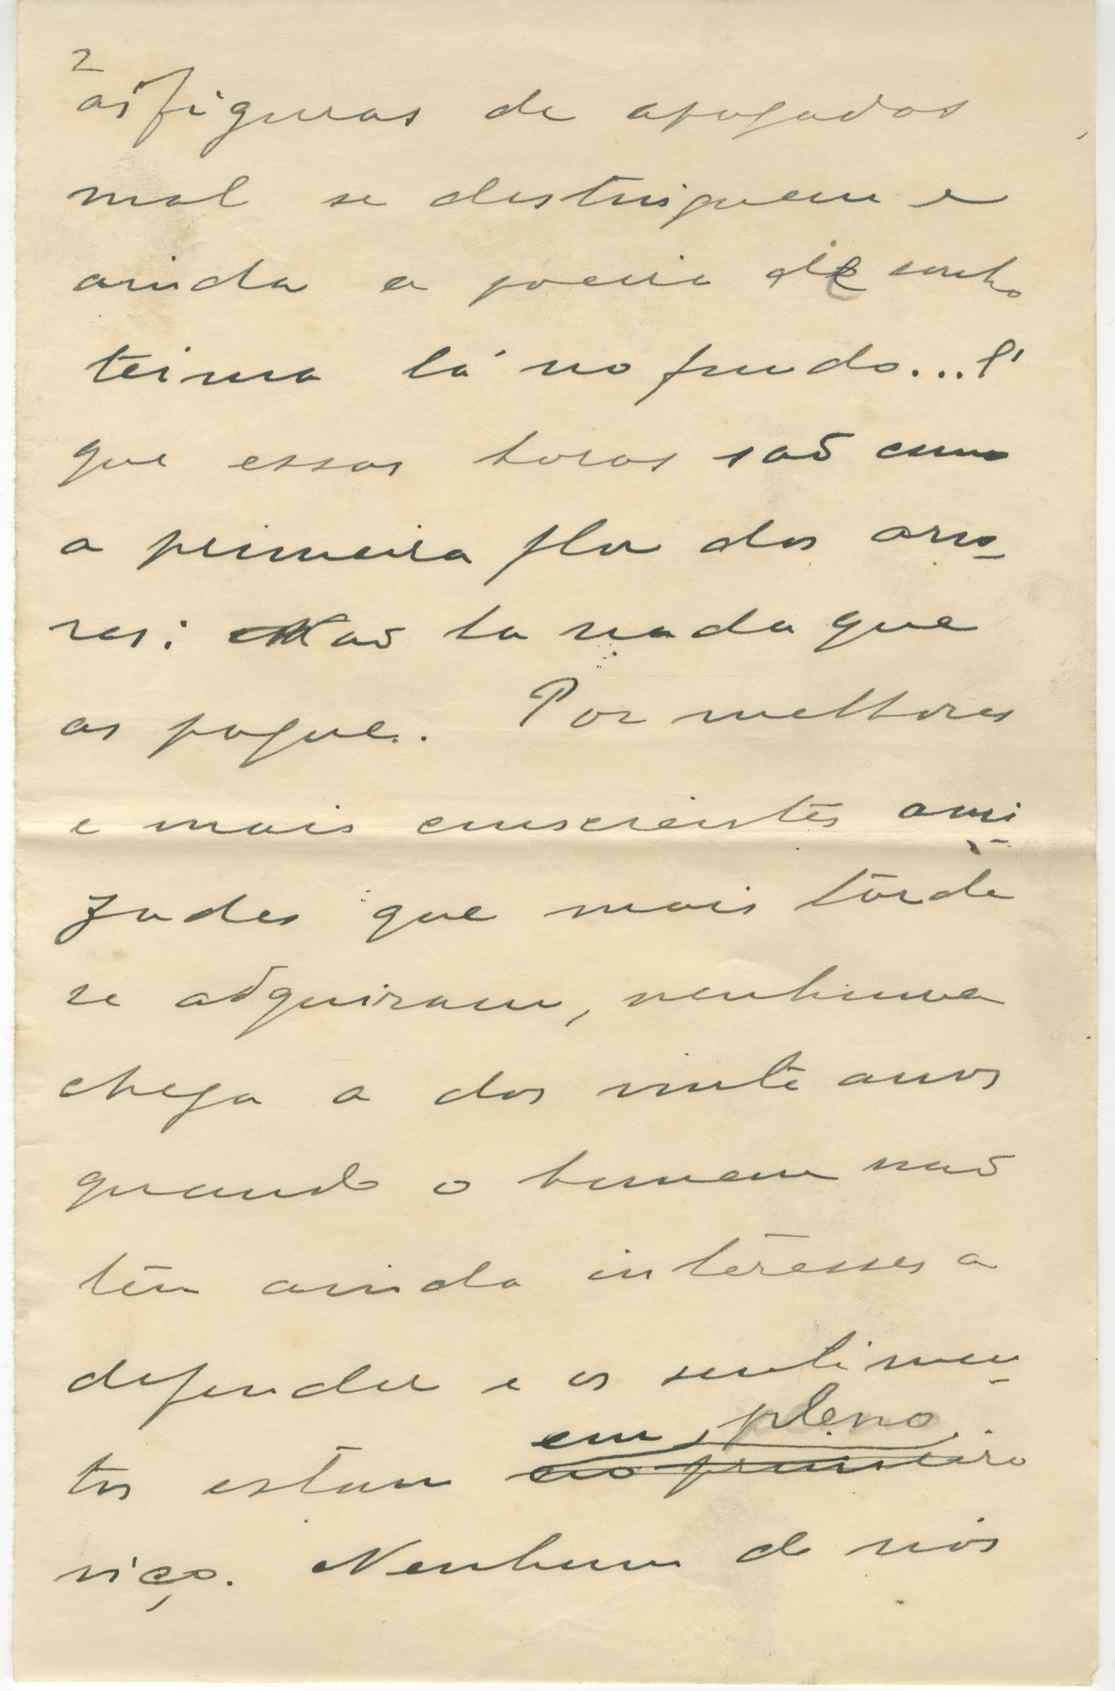 2
as figuras de apagadas
mal se destinguem e
ainda a poeira de sonho
teima lá no fundo... É
que essas horas são como
a primeira flor das arvo-
res: Não ha nada que
as pague. Por melhores
e mais conscientes ami-
zades que mais tarde
se adquiram, nenhuma
chega a dos vinte anos
quando o homem não
têm ainda interesses a
defender e os sentimen-
tos estam em pleno
no primeiro
viço. Nenhum de nós